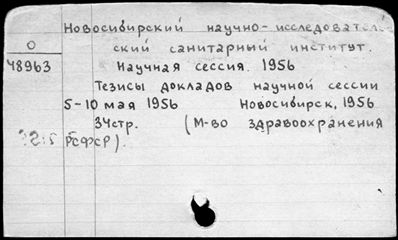 Новосибирский научно-исследовател
О
ский санитарный институт.
48963
Научная сессия. 1956
Тезисы докладов научной сессии
5-10 мая 1956 Новосибирск, 1956
34стр. (М-во здравоохранения
РСФСР).